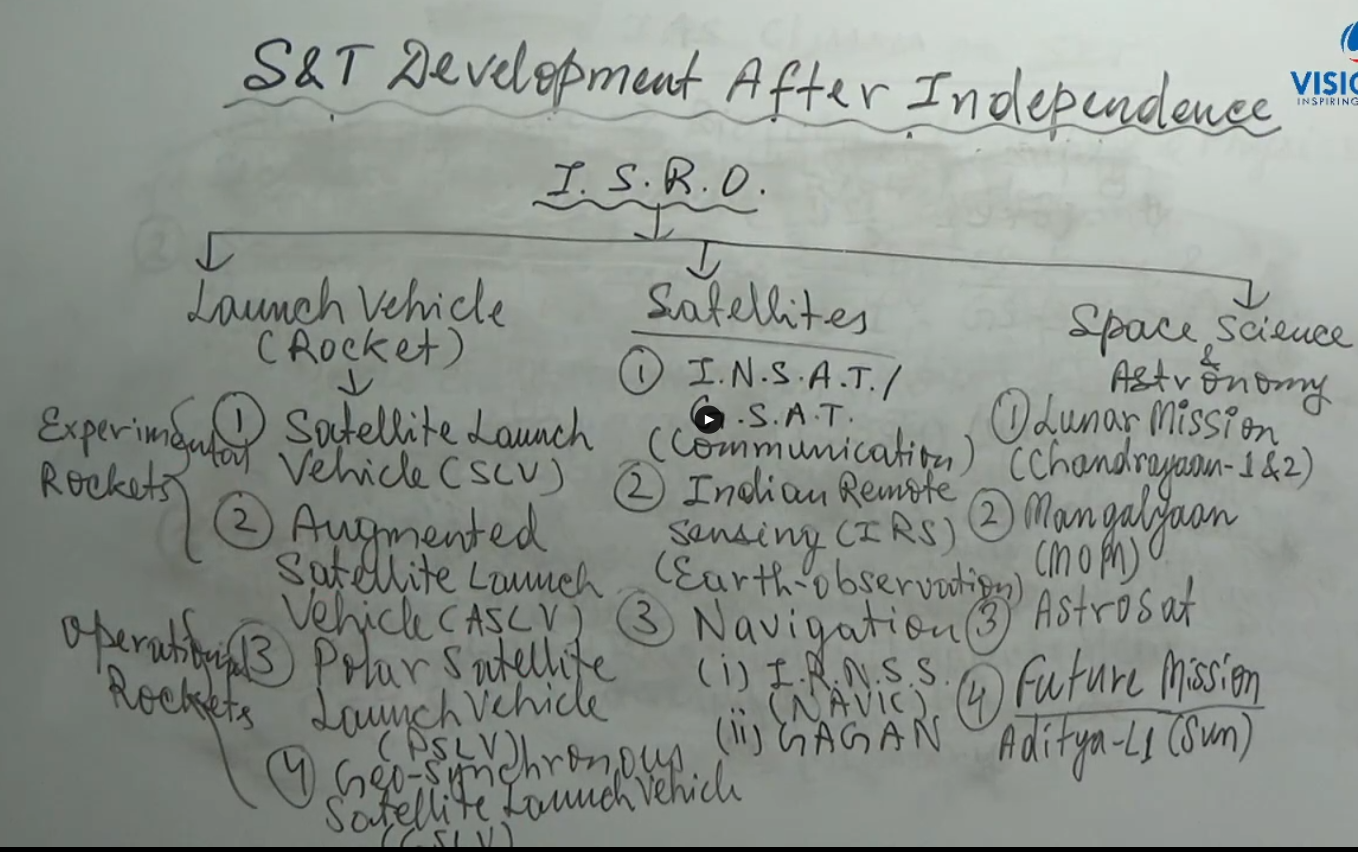 S&T Development After Independence
VISIO
INSPIRING
I.S.R.O.
Launch Vehicle
(Rocket)
Experimental
Rockets
① Satellite Launch
Vehicle (SLV)
② Augmented
Satellite Launch
Vehicle (ASLV)
Operational
Rockets
③ Polar Satellite
Launch Vehicle
(PSLV)
④ Geo-Synchronous
Satellite Launch Vehicle
(GSLV)
Satellites
① I.N.S.A.T./
G.S.A.T.
(Communication)
② Indian Remote
Sensing (IRS)
(Earth-observation)
③ Navigation
(i) I.R.N.S.S.
(NAVIC)
(ii) GAGAN
Space Science
&
Astronomy
① Lunar Mission
(Chandrayaan-1&2)
② Mangalyaan
(MOM)
③ AstroSat
④ Future Mission
Aditya-L1 (Sun)